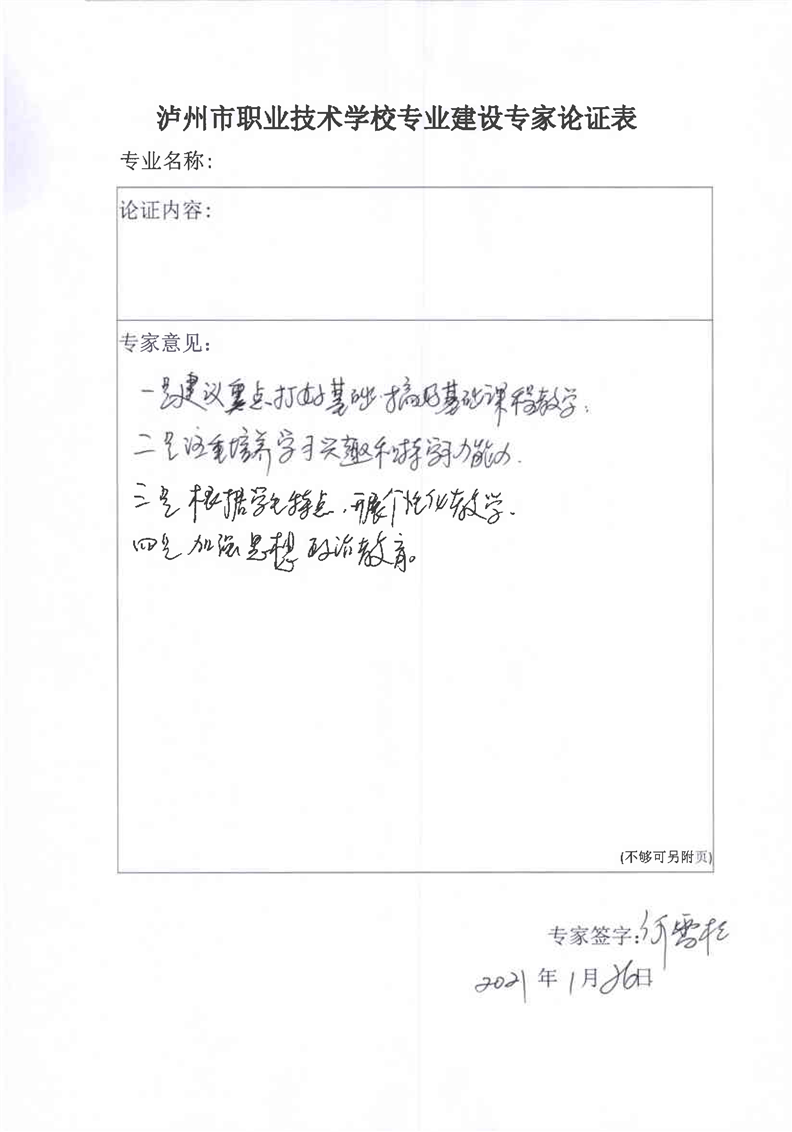 泸州市职业技术学校专业建设专家论证表
专业名称：
论证内容：
专家意见：
一是建议重点打好基础，搞好基础课程教学；
二是注重培养学习兴趣和持学习能力.
三是根据学生特点，开展个性化教学.
四是加强思想政治教育。
(不够可另附页)
专家签字：何雪松
2021年1月26日